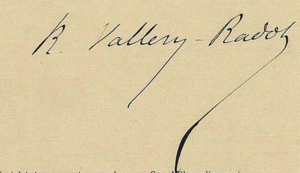 R. Vallery-Radot